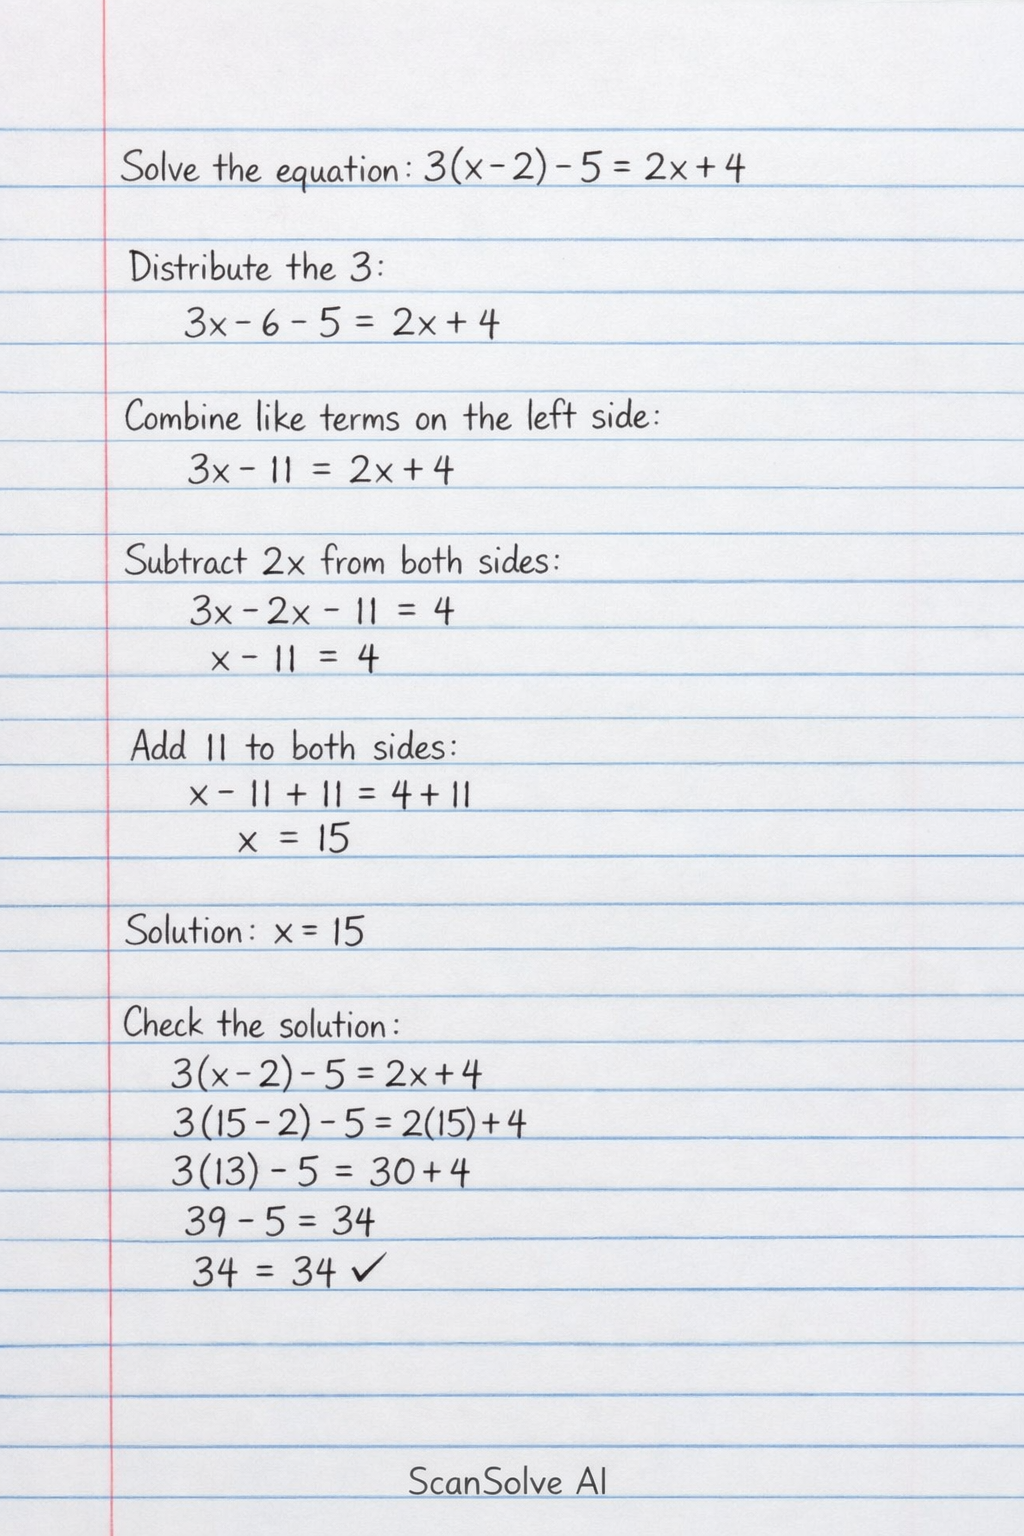 Solve the equation: 3(x-2)-5 = 2x+4
Distribute the 3:
3x-6-5 = 2x+4
Combine like terms on the left side:
3x-11 = 2x+4
Subtract 2x from both sides:
3x-2x-11 = 4
x-11 = 4
Add 11 to both sides:
x-11+11 = 4+11
x = 15
Solution: x = 15
Check the solution:
3(x-2)-5 = 2x+4
3(15-2)-5 = 2(15)+4
3(13)-5 = 30+4
39-5 = 34
34 = 34 ✓
ScanSolve AI